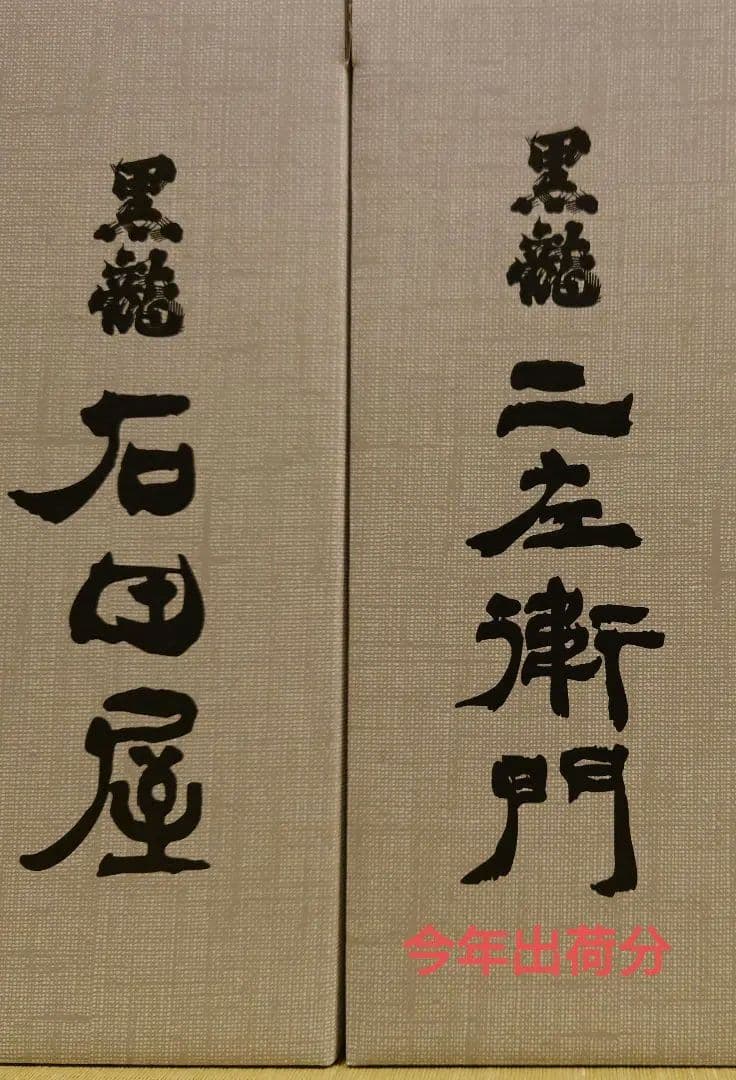 黒龍
石田屋
黒龍
二左衛門
今年出荷分